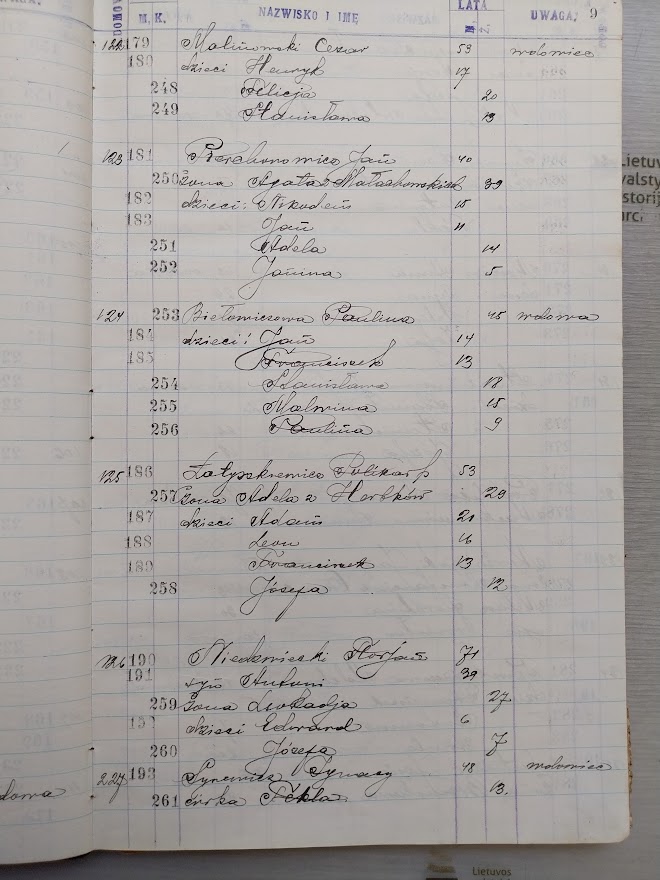 DOMÓW
M. K. NAZWISKO I IMĘ LATA M. Ż. UWAGA, 9
122 179 Malinowski Cezar 53 wdowiec
180 dzieci Henryk 17
248 Felicja 20
249 Stanisława 13
123 181 Jan 40
250 żona Agata z Małachowskich 39
182 dzieci: Nikodem 15
183 Jan 11
251 Adela 14
252 Janina 5
124 253 Paulina 45 wdowa
184 dzieci: Jan 14
185 Franciszek 13
254 Stanisława 18
255 Malwina 15
256 Paulina 9
125 186 Polikarp 53
257 żona Adela z 29
187 dzieci Adam 21
188 Leon 16
189 Franciszek 13
258 Józefa 12
126 190 Florjan 71
191 syn Antoni 39
259 żona Leokadja 27
dzieci Edward 6
260 Józefa 7
227 193 48 wdowiec
261 córka Tekla 13.
Lietuv
valsty
istorij
arc
Lietuvos